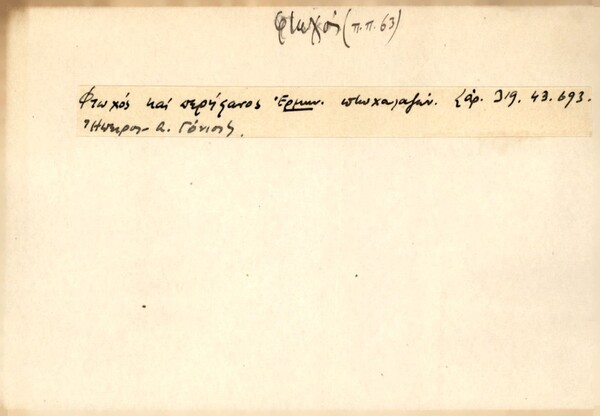 φτωχός (π.π. 63)
Φτωχός και περήφανος Ἑρμην. πτωχαλαζών. Σάρ. 319. 43. 693.
Ἤπειρος - Α. Γόνιος.